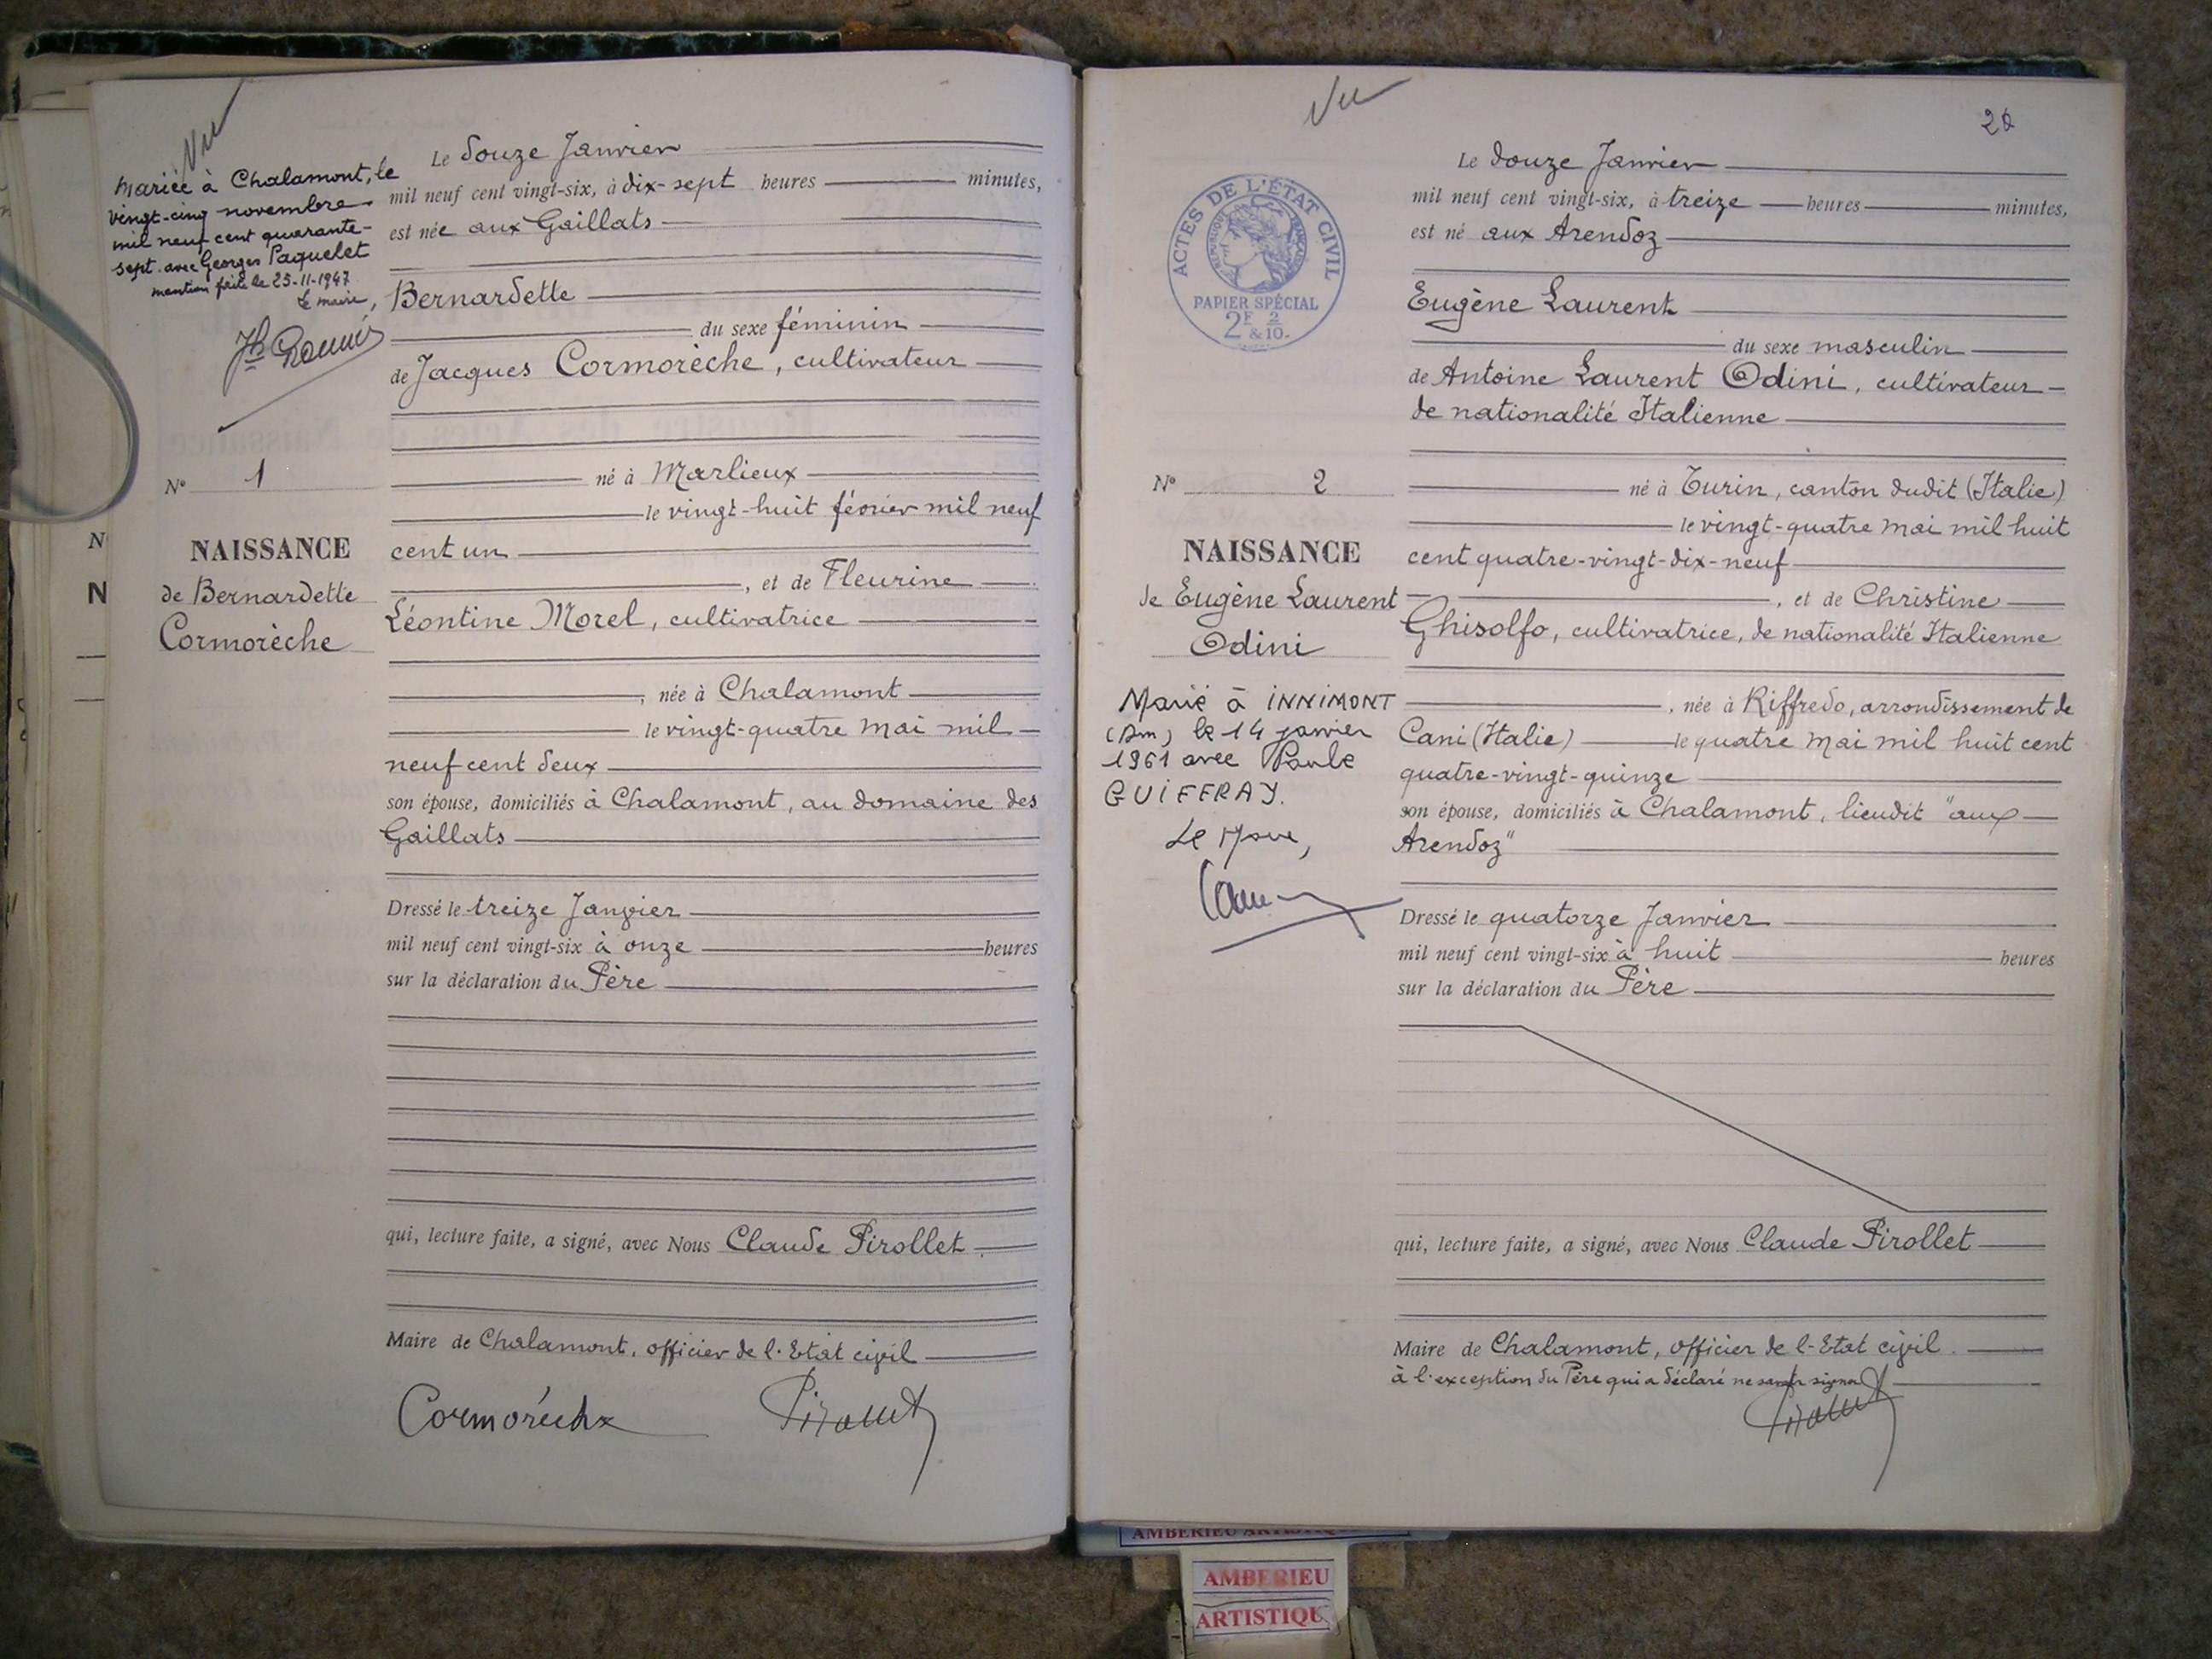 Vu
Mariée à Chalamont, le
vingt-cinq novembre
mil neuf cent quarante-
sept avec Georges Paquelet
mention faite le 25-11-1947
le maire,
N° 1
NAISSANCE
de Bernardette
Cormorèche
Le douze Janvier
mil neuf cent vingt-six, à dix-sept heures minutes,
est née aux Gaillats
Bernardette
du sexe féminin
de Jacques Cormorèche, cultivateur
né à Marlieux
le vingt-huit février mil neuf
cent un
, et de Fleurine
Léontine Morel, cultivatrice
, née à Chalamont
le vingt-quatre mai mil
neuf cent deux
son épouse, domiciliés à Chalamont, au domaine des
Gaillats
Dressé le treize Janvier
mil neuf cent vingt-six à onze heures
sur la déclaration du Père
qui, lecture faite, a signé, avec Nous Claude Pirollet
Maire de Chalamont, officier de l'Etat civil
Cormorèche Pirollet
Vu
ACTES DE L'ÉTAT CIVIL
RÉPUBLIQUE FRANÇAISE
PAPIER SPÉCIAL
2F 2
& 10.
N° 2
NAISSANCE
de Eugène Laurent
Odini
Marié à INNIMONT
(Ain) le 14 janvier
1961 avec Paule
GUIFFRAY.
Le Maire,
Le douze Janvier
mil neuf cent vingt-six, à treize heures minutes,
est né aux Arendoz
Eugène Laurent
du sexe masculin
de Antoine Laurent Odini, cultivateur
de nationalité Italienne
né à Turin, canton dudit (Italie)
le vingt-quatre mai mil huit
cent quatre-vingt-dix-neuf
, et de Christine
Ghisolfo, cultivatrice, de nationalité Italienne
, née à Riffredo, arrondissement de
Cani (Italie) le quatre mai mil huit cent
quatre-vingt-quinze
son épouse, domiciliés à Chalamont, lieudit "aux
Arendoz"
Dressé le quatorze Janvier
mil neuf cent vingt-six à huit heures
sur la déclaration du Père
qui, lecture faite, a signé, avec Nous Claude Pirollet
Maire de Chalamont, officier de l'Etat civil.
à l'exception du Père qui a déclaré ne savoir signer
Pirollet
AMBERIEU
AMBERIEU
ARTISTIQU